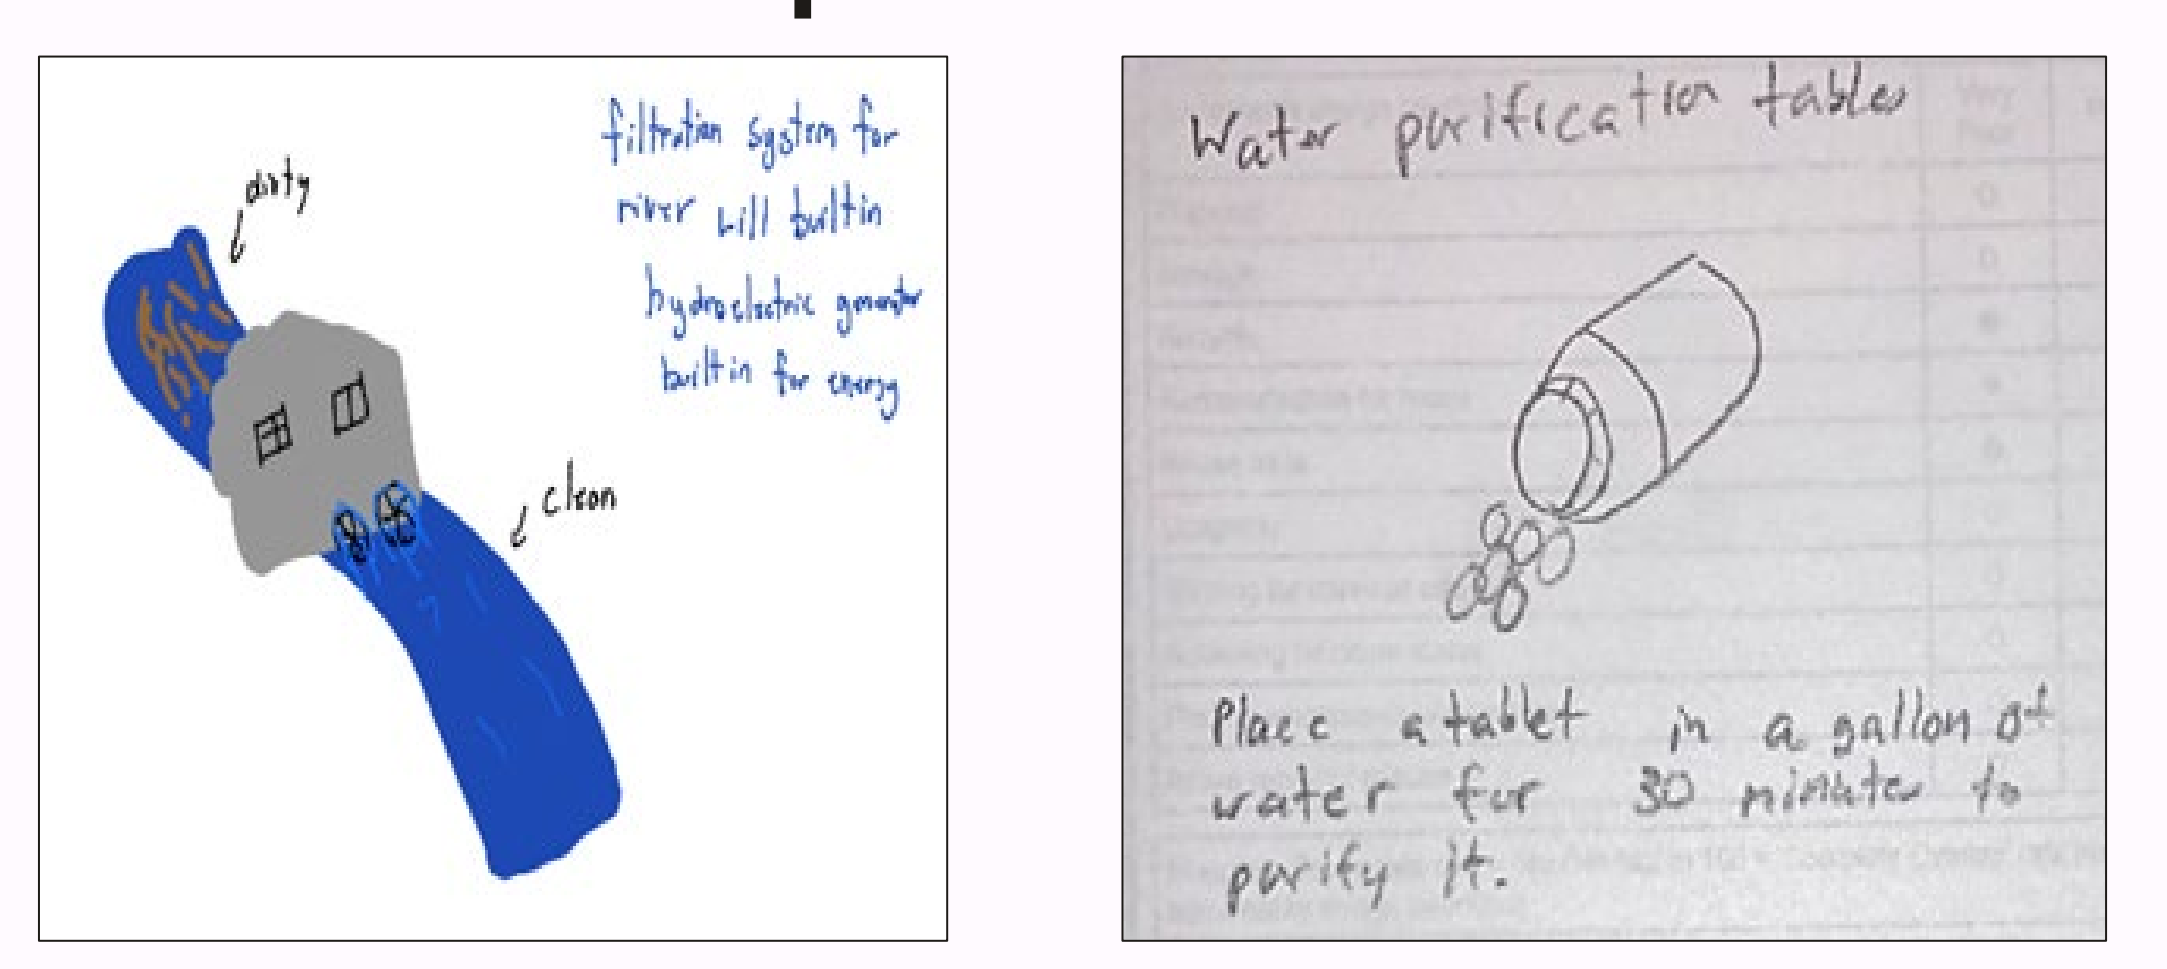 dirty
filtration system for
river will builtin
hydroelectric generator
builtin for energy
clean
Water purification tables
Place a tablet in a gallon of
water for 30 minutes to
purify it.